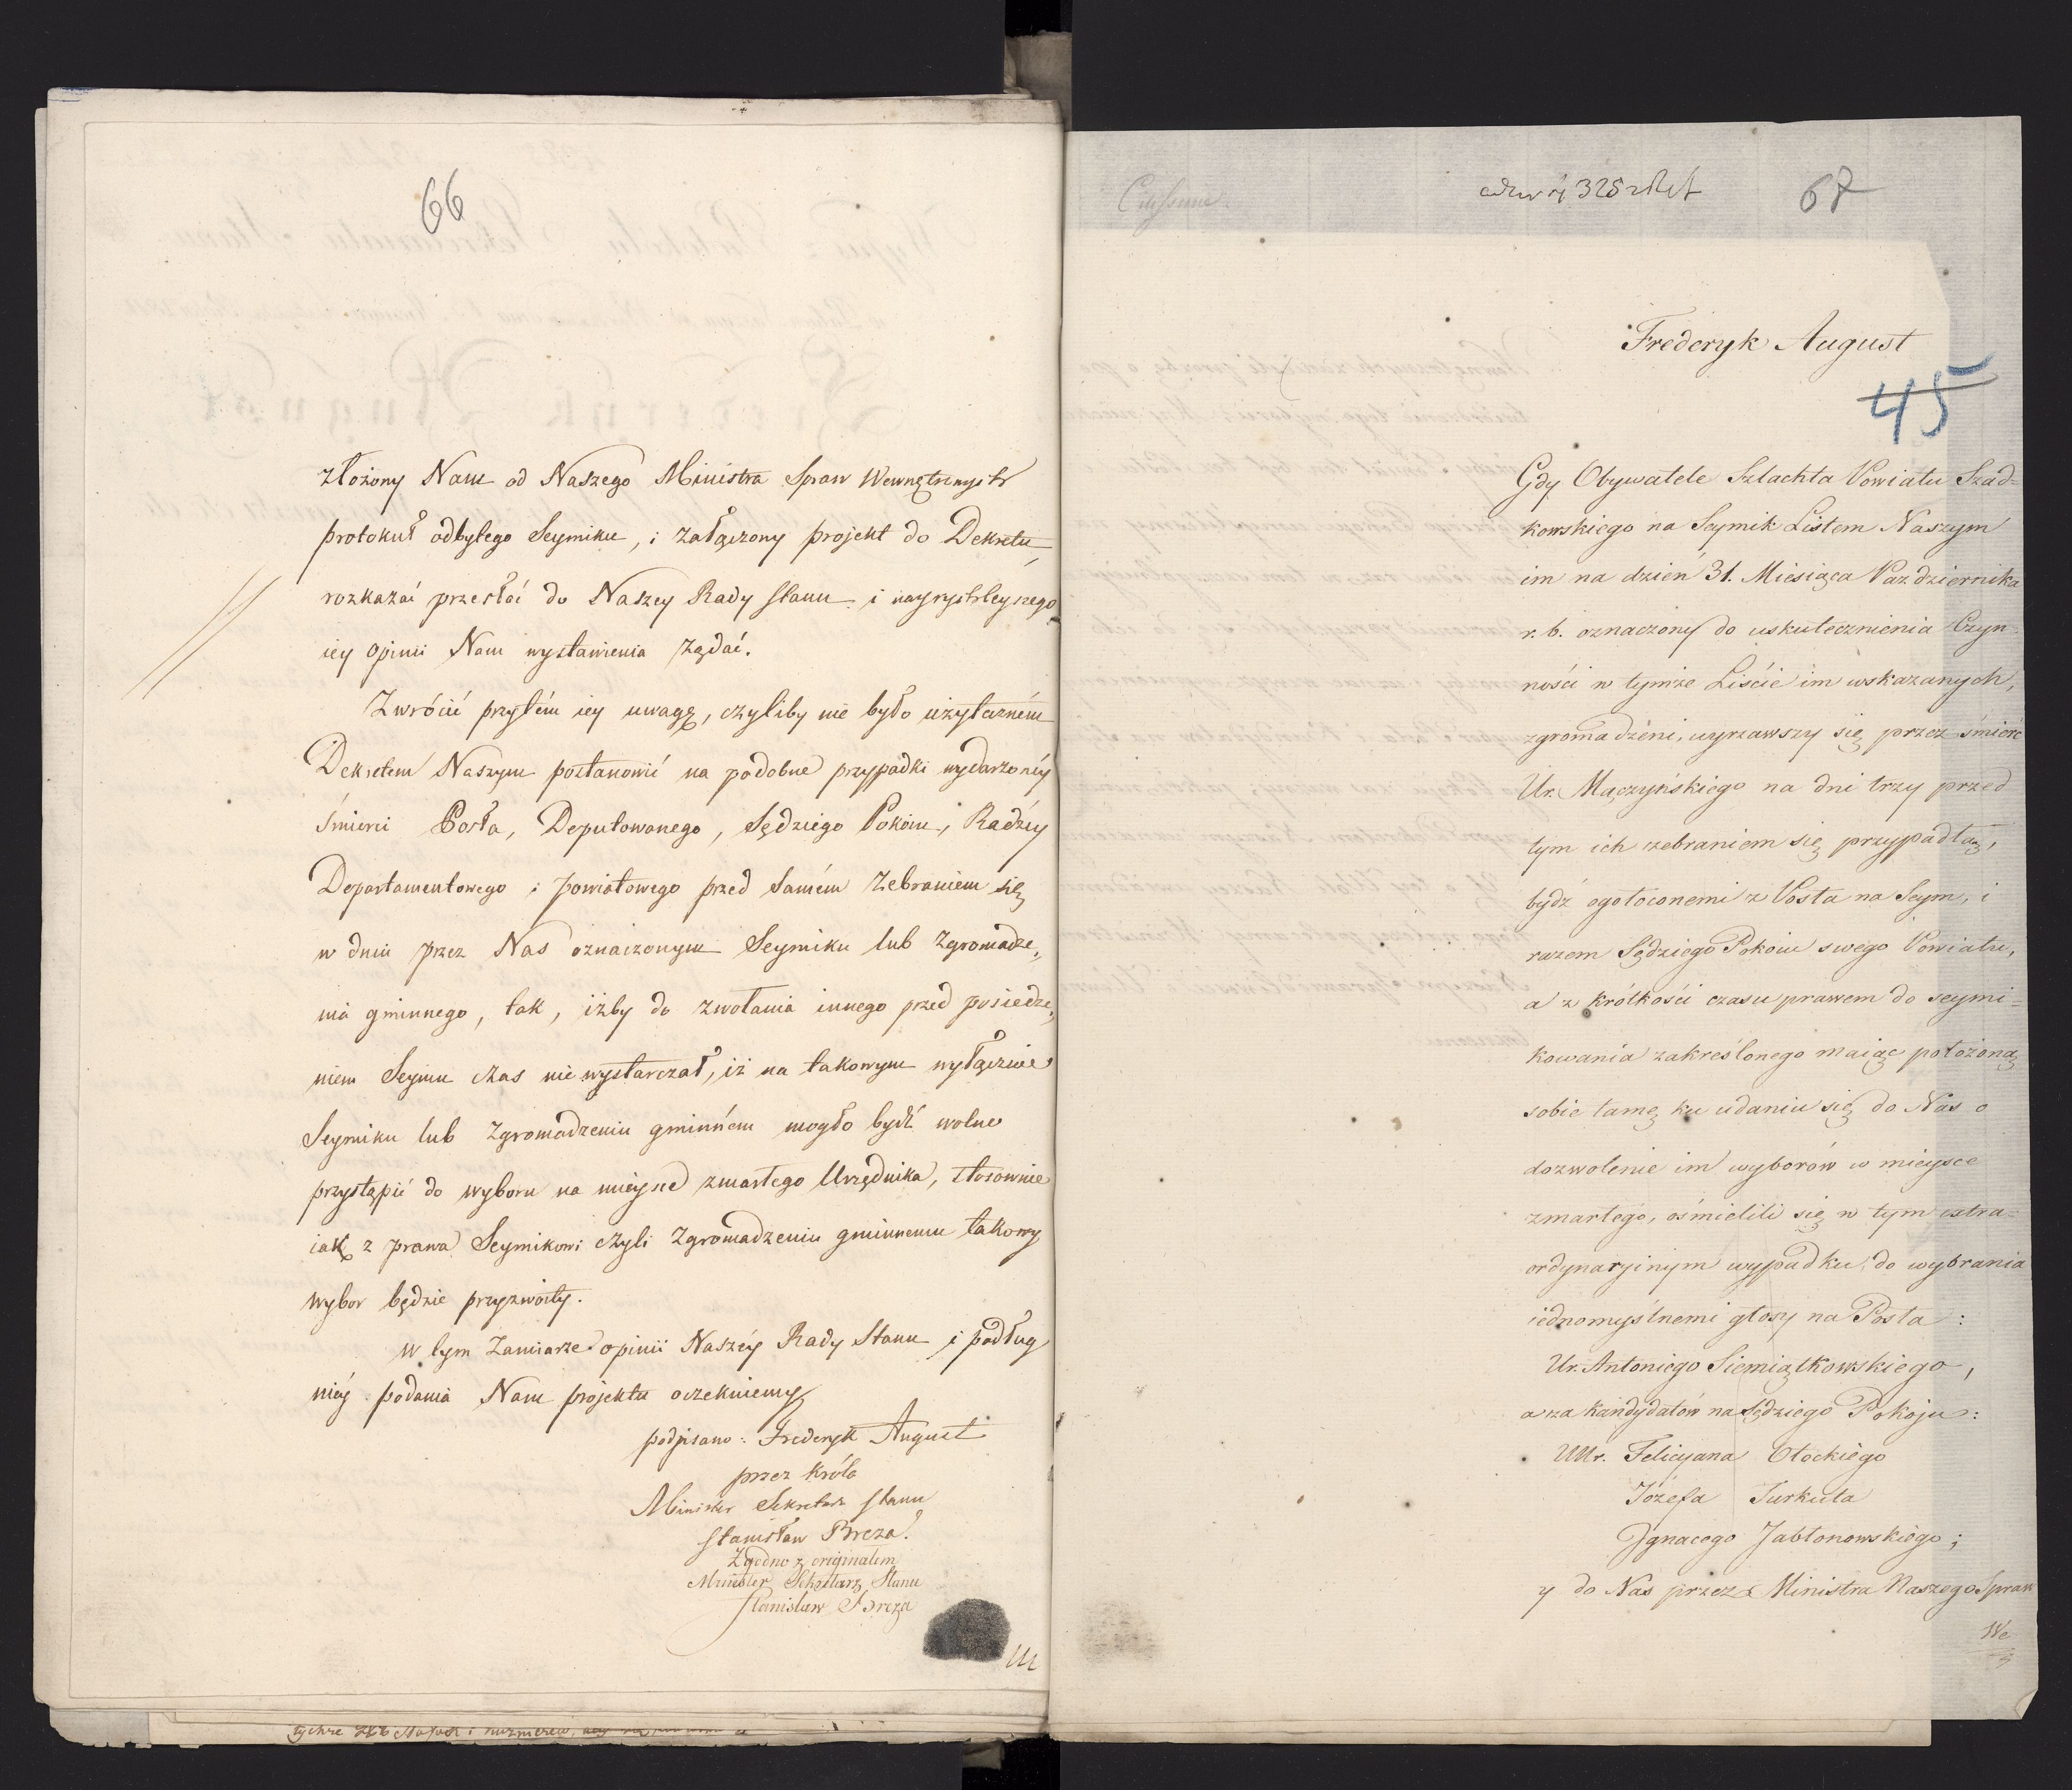 66
złożony Nam od Naszego Ministra Spraw Wewnętrznych
protokuł odbytego Seymiku, i załączony projekt do Dekretu
rozkazać przesłać do Naszey Rady Stanu i nayrychleyszego
iey opinii Nam wystawienia żądać.
Zwrócić przytém iey uwagę, czyliby nie było użyteczném
Dekretem Naszym postanowić na podobne przypadki wydarzonéy
śmierci Posła, Deputowanego, Sędziego Pokoiu, Radźcy
Departamentowego i powiatowego przed samém zebraniem się
w dniu przez Nas oznaczonym Seymiku lub Zgromadze„
nia gminnego, tak, iżby do zwołania innego przed posiedze„
niem Seymu czas nie wystarczał, iż na takowym wyłącznie
Seymiku lub Zgromadzeniu gminném mogło bydź wolno
przystąpić do wyboru na mieysce zmarłego Urzędnika, stosownie
iak z prawa Seymikowi czyli Zgromadzeniu gminnemu takowy
wybor będzie przyzwoity.
w tym zamiarze opinii Naszéy Rady Stanu i podług
niéy podania Nam projektu oczekuiemy
podpisano: Frederyk August
przez Króla
Minister Sekretarz Stanu
Stanisław Breza.
Zgodno z originałem
Minister Sekretarz Stanu
Stanisław Breza
67
Frederyk August
45
Gdy Obywatele Szlachta Powiatu Szad=
kowskiego na Seymik Listem Naszym
im na dzień 31. Miesiąca Pazdziernika
r. b. oznaczony do uskutecznienia Czyn
ności w tymże Liście im wskazanych,
zgromadzeni, uyrzawszy się przez śmierć
Ur. Mączyńskiego na dni trzy przed
tym ich zebraniem się przypadłą,
bydź ogołoconemi z Posła na Seym, i
razem Sędziego Pokoiu swego Powiatu,
a z krótkości czasu prawem do seymi=
kowania zakreślonego maiąc położoną
sobie tamę ku udaniu się do Nas o
dozwolenie im wyborów w mieysce
zmarłego, ośmielili się w tym extra=
ordynaryinym wypadku do wybrania
iednomyślnemi głosy na Posła:
Ur. Antoniego Siemiątkowskiego,
a za kandydatów na Sędziego Pokoju:
UUr. Felicyana Otockiego
Józefa Turkuła
Ignacego Jabłonowskiego;
y do Nas przez Ministra Naszego Spraw
We